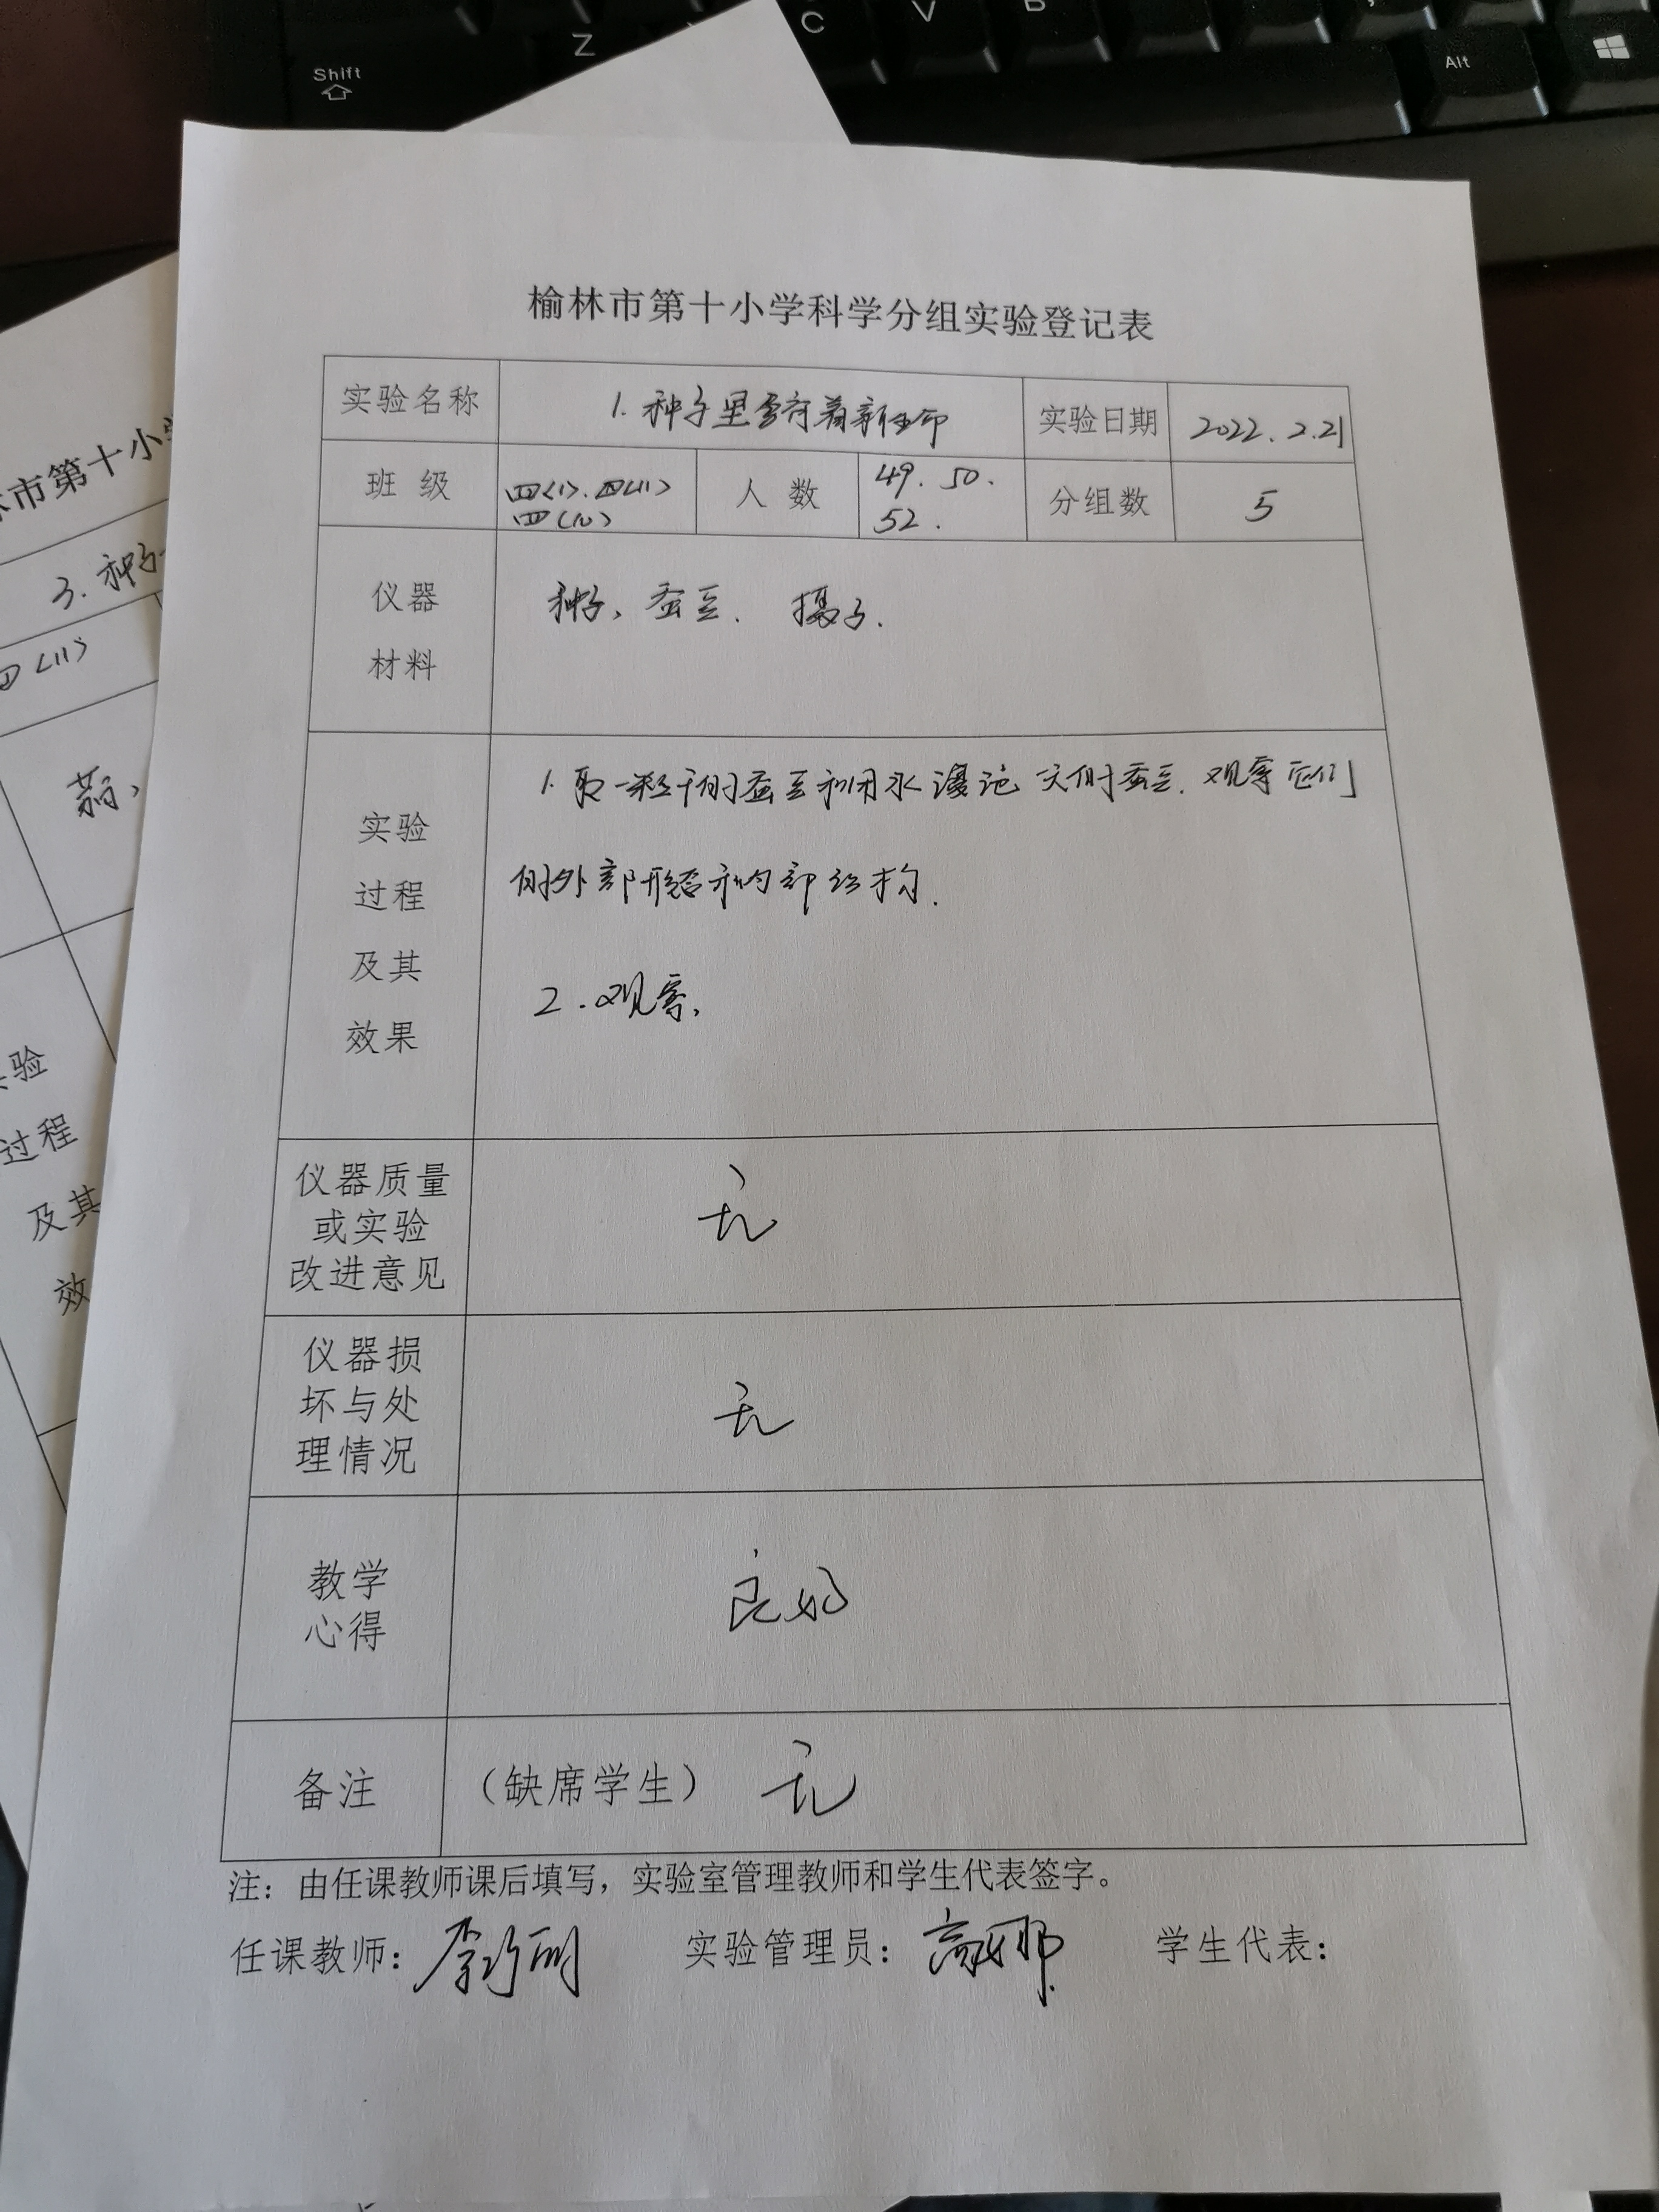 Z
C
V
B
Shift
Alt
榆林市第十小学科学分组实验登记表
实验名称 1.种子里孕育着新生命 实验日期 2022.2.21
班 级 四(1).四(11) 人 数 49.50. 分组数 5
四(12) 52.
仪器 种子、蚕豆. 镊子.
材料
1.取一粒干的蚕豆和用水浸泡 天的蚕豆.观察它们
实验
过程 的外部形态和内部结构.
及其 2.观察、
效果
仪器质量
或实验 无
改进意见
仪器损
坏与处 无
理情况
教学 良好
心得
备注 (缺席学生) 无
注：由任课教师课后填写，实验室管理教师和学生代表签字。
任课教师： 实验管理员：高娜 学生代表：
市第十小学
3.种子
四(11)
验
过程
及其
效